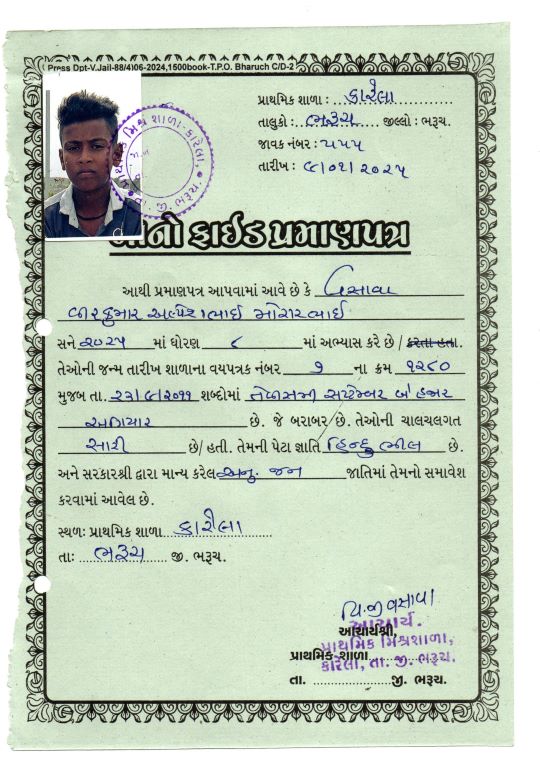 Press Dpt-V.Jail-88/4)06-2024,1500book-T.P.O. Bharuch C/D-2
પ્રાથમિક શાળા : કારેલા
તાલુકો : ભરૂચ જીલ્લો : ભરૂચ.
જાવક નંબર : ૫૫૫
તારીખ : ૯/૦૧/૨૦૨૫
પ્રાથમિક મિશ્ર શાળા-કારેલા, તા. જી. ભરૂચ.
બોનો ફાઈડ પ્રમાણપત્ર
આથી પ્રમાણપત્ર આપવામાં આવે છે કે વસાવા
અલ્પેશભાઈ
સને ૨૦૨૫ માં ધોરણ ૮ માં અભ્યાસ કરે છે / કરતા હતા.
તેઓની જન્મ તારીખ શાળાના વયપત્રક નંબર ૭ ના ક્રમ ૧૨૮૦
મુજબ તા. ૨૩/૯/૨૦૧૧ શબ્દોમાં ત્રેવીસમી સપ્ટેમ્બર બે હજાર
અગિયાર છે. જે બરાબર છે. તેઓની ચાલચલગત
સારી છે/ હતી. તેમની પેટા જ્ઞાતિ હિન્દુ ભીલ છે.
અને સરકારશ્રી દ્વારા માન્ય કરેલ અનુ. જન જાતિમાં તેમનો સમાવેશ
કરવામાં આવેલ છે.
સ્થળઃ પ્રાથમિક શાળા કારેલા
તાઃ ભરૂચ જી. ભરૂચ.
વસાવા
આચાર્ય.
આચાર્યશ્રી,
પ્રાથમિક મિશ્રશાળા,
પ્રાથમિક શાળા
કારેલા, તા. જી. ભરૂચ.
તા. જી. ભરૂચ.